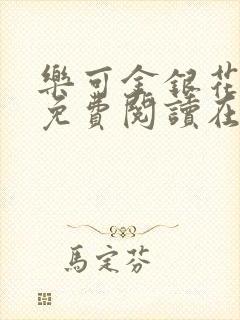 樂可金銀花
免費閱讀在
馬定芬